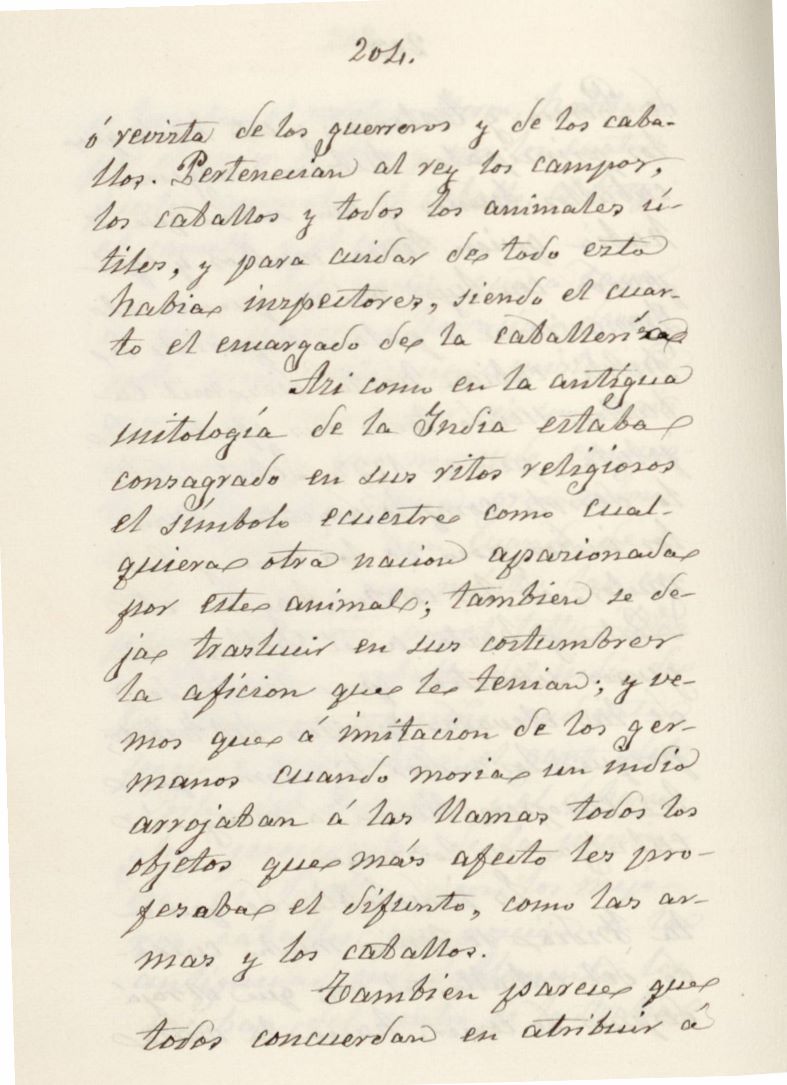 204.
ó revista de los guerreros y de los caba-
llos. Pertenecian al rey los campos,
los caballos y todos los animales ú-
tiles, y para cuidar de todo esto
habia inspectores, siendo el cuar-
to el encargado de la caballeríza
Asi como en la antígua
mitología de la India estaba
consagrado en sus ritos religiosos
el símbolo ecuestre como cual-
quiera otra nacion apasionada
por este animal; tambien se de-
ja traslucir en sus costumbres
la aficion que le tenian; y ve-
mos que á imitacion de los ger-
manos cuando moria un indio
arrojaban á las llamas todos los
objetos que más afecto les pro-
fesaba el difunto, como las ar-
mas y los caballos.
Tambien parece que
todos concuerdan en atribuir á